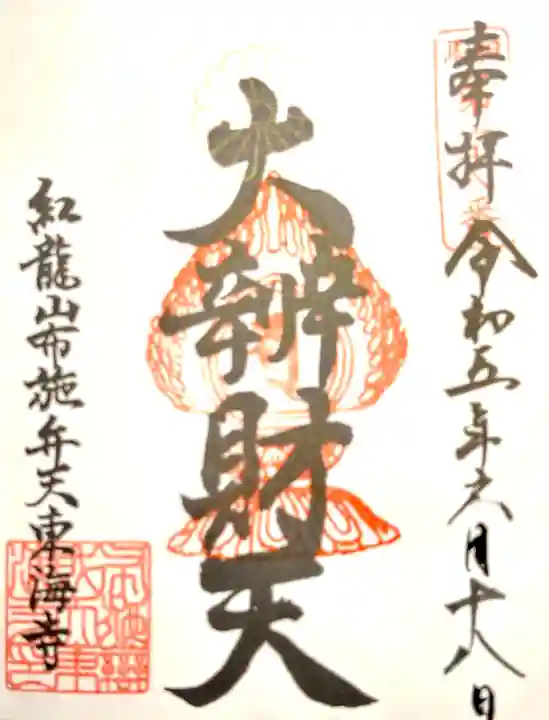 奉拝 令和五年六月十八日
大辨財天
紅龍山布施弁天東海寺